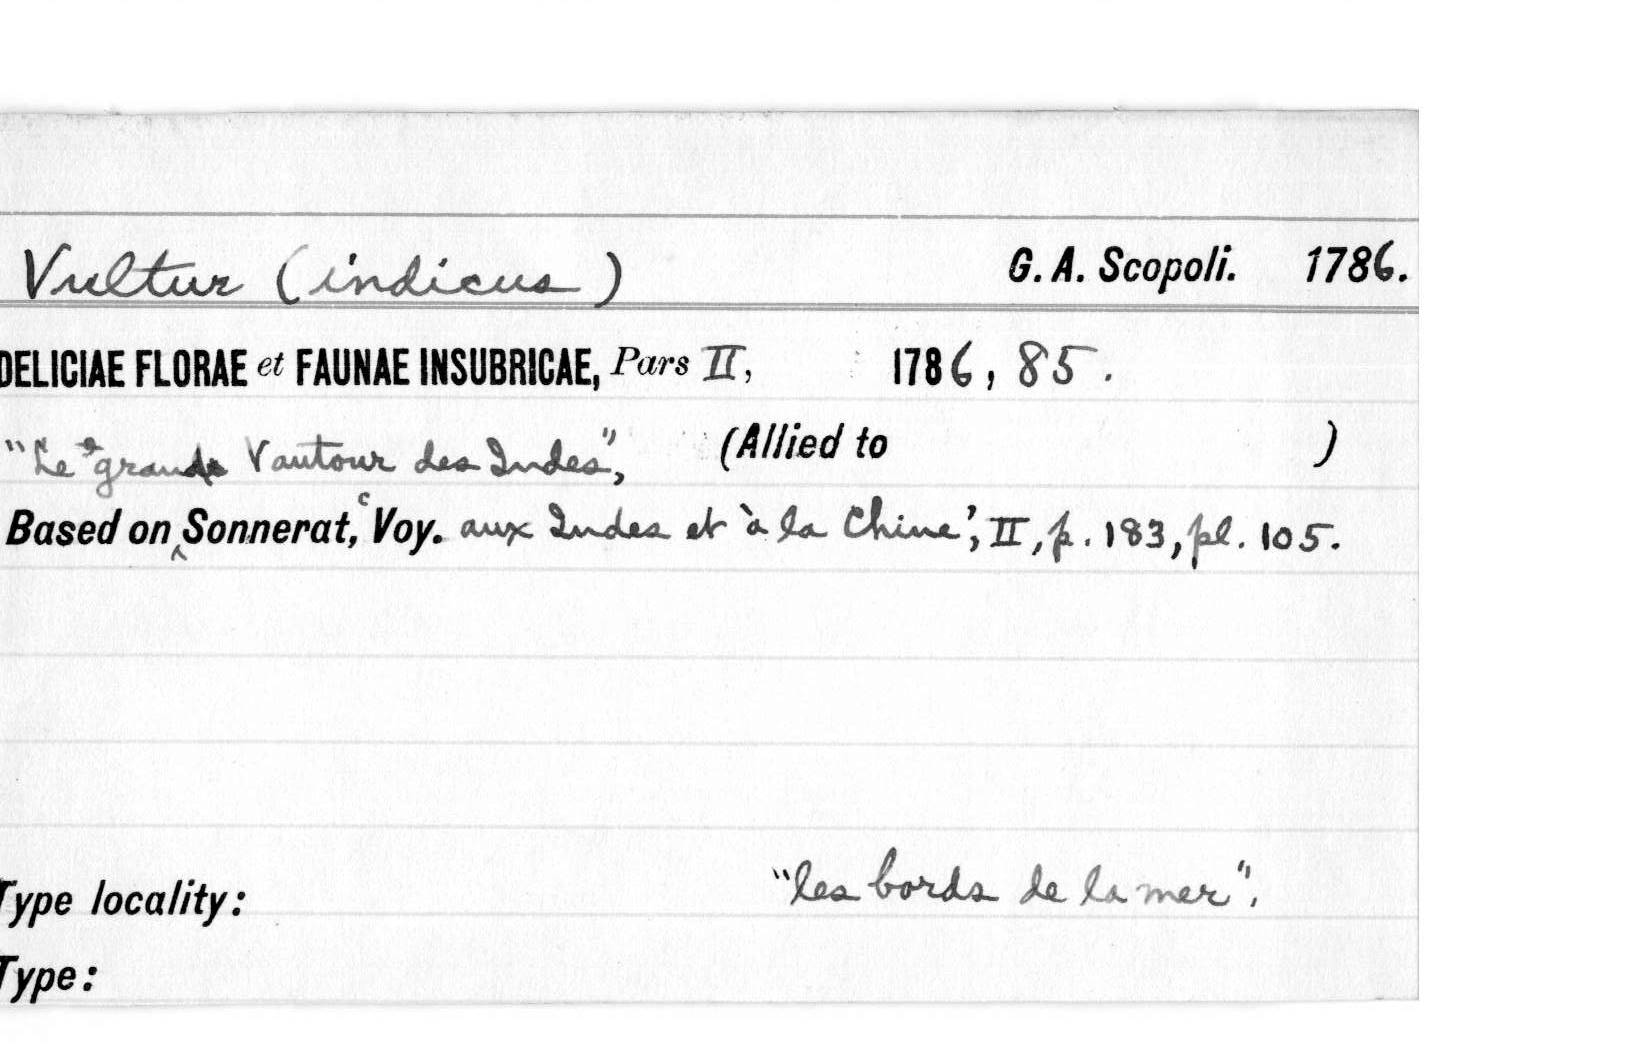 Vultur (indicus) G. A. Scopoli. 1786.
DELICIAE FLORAE et FAUNAE INSUBRICAE, Pars II, 1786, 85.
"Le grand Vautour des Indes", (Allied to )
Based on ‸ Sonnerat, 'Voy. aux Indes et à la Chine', II, p. 183, pl. 105.
Type locality: "les bords de la mer".
Type: